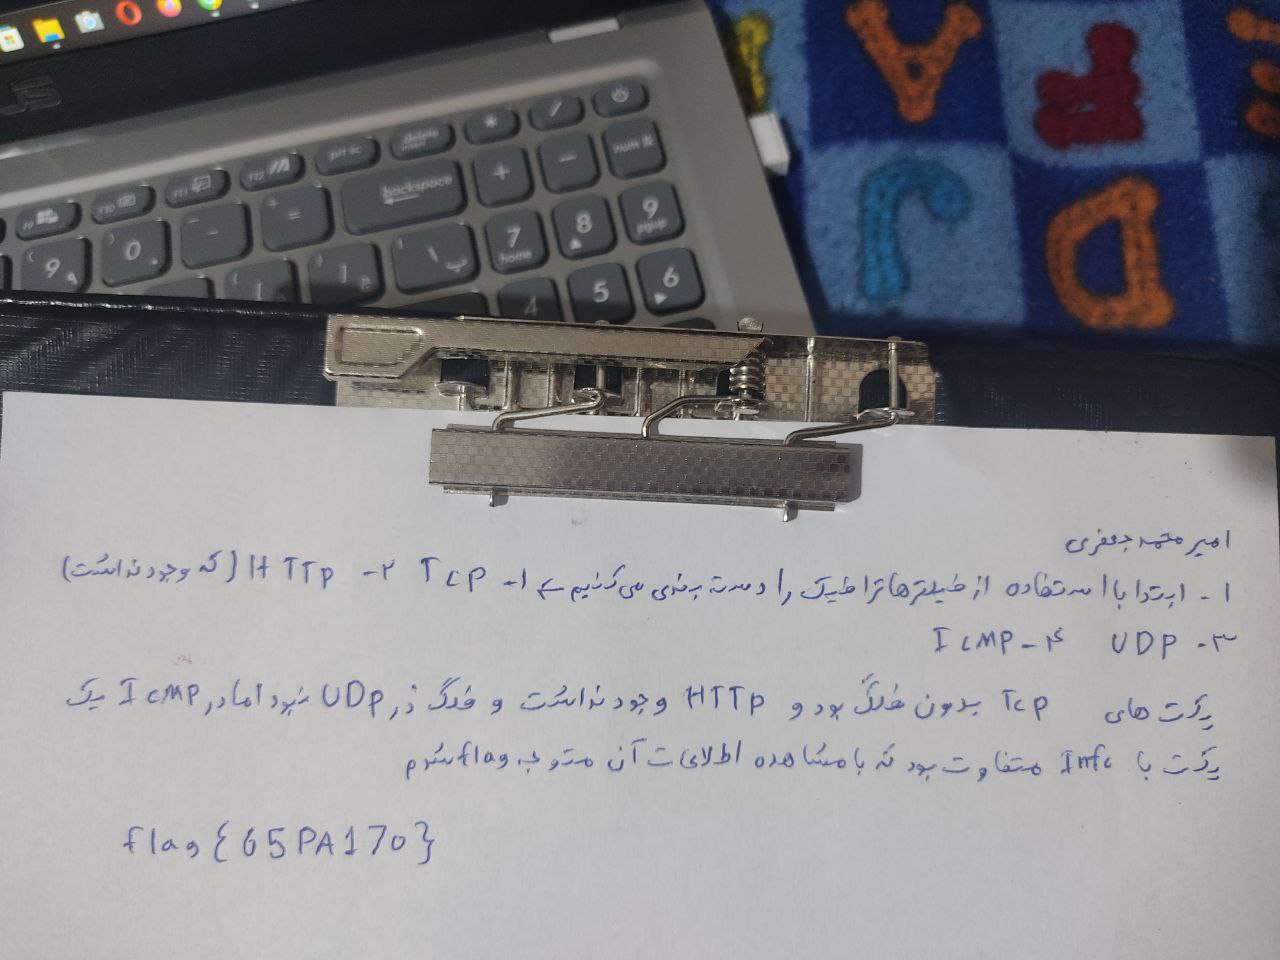 delete
prt sc
F12
F11
F10
F9
backspace
num lk
+
-
*
/
=
7
home
8
9
pgup
4
5
6
9
0
امیر محمد جعفری
۱- ابتدا با استفاده از فیلترها ترافیک را دسته بندی می کنیم ۱- TCP ۲- HTTP (که وجود نداشت)
۳- UDP ۴- ICMP
پکت های TCP بدون فلگ بود و HTTP وجود نداشت و فلگ در UDP نبود اما در ICMP یک
پکت با Info متفاوت بود که با مشاهده اطلاعات آن متوجه flag شدم
flag{65PA170}